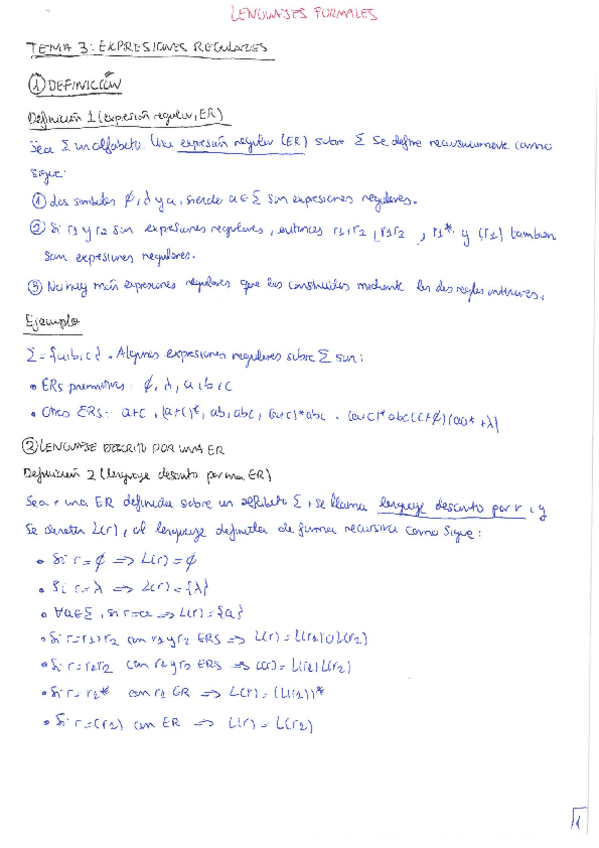 LENGUAJES FORMALES
TEMA 3: EXPRESIONES REGULARES
① DEFINICIÓN
Definición 1 (expresión regular, ER)
Sea Σ un alfabeto. Una expresión regular (ER) sobre Σ se define recursivamente como
sigue:
① Los símbolos ∅, λ y a, siendo a ∈ Σ son expresiones regulares.
② Si r1 y r2 son expresiones regulares, entonces r1+r2, r1r2, r1* y (r1) también
son expresiones regulares.
③ No hay más expresiones regulares que las construidas mediante las dos reglas anteriores.
Ejemplo
Σ = {a,b,c}. Algunas expresiones regulares sobre Σ son:
• ERs primitivas: ∅, λ, a, b, c
• Otras ERs: a+c, (a+c)*, ab, abc, (a+c)*abc, (a+c)*abc(c+∅)(aa*+λ)
② LENGUAJE DESCRITO POR UNA ER
Definición 2 (lenguaje descrito por una ER)
Sea r una ER definida sobre un alfabeto Σ, se llama lenguaje descrito por r, y
se denota L(r), al lenguaje definido de forma recursiva como sigue:
• Si r = ∅ => L(r) = ∅
• Si r = λ => L(r) = {λ}
• ∀a∈Σ, si r = a => L(r) = {a}
• Si r = r1+r2 con r1 y r2 ERS => L(r) = L(r1) ∪ L(r2)
• Si r = r1r2 con r1 y r2 ERS => L(r) = L(r1)L(r2)
• Si r = r1* con r1 ER => L(r) = (L(r1))*
• Si r = (r1) con ER => L(r) = L(r1)
1